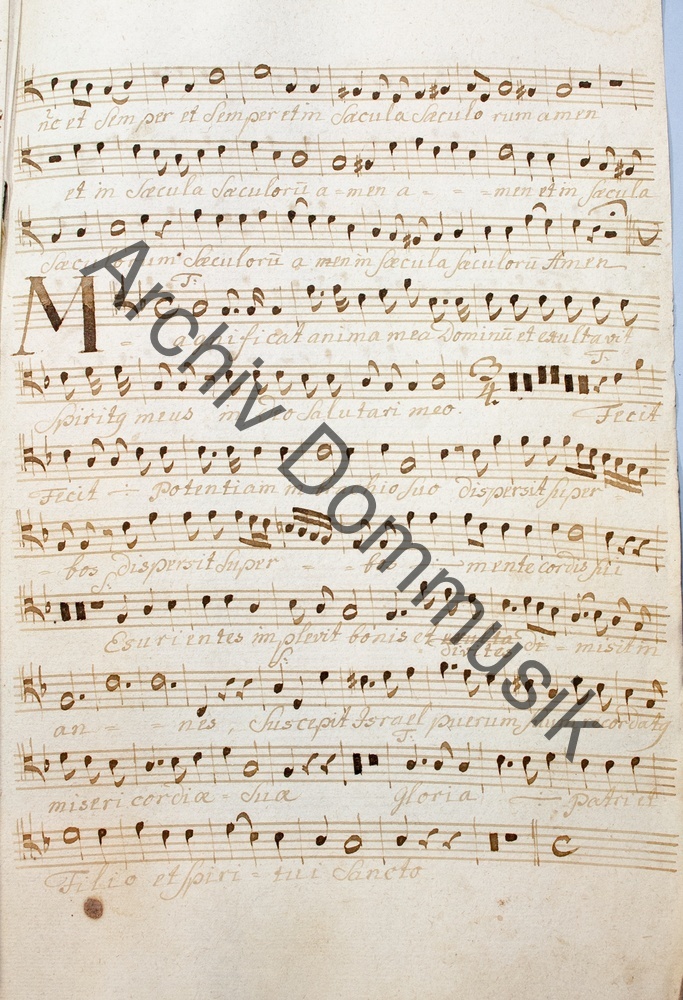 nc et Semper et Semper et in Sæcula Sæculo rum amen
et in Sæcula Sæculorū a = men a - - - men et in Sæcula
Sæculorum Sæculorū a men in Sæcula Sæculorū Amen
T:
Magnificat anima mea Dominū et exultavit
3/4
T:
Spiritq meus in Deo Salutari meo. Fecit
Fecit Potentiam in brachio Suo dispersit Super
bos dispersit Super - - bos mente cordis Sui
S:
Esurientes implevit bonis et divites di = misit in
S:
an - - - nes, Suscepit Israel puerum Suum recordatq
T:
misericordiæ = Suæ Gloria Patri et
C
Filio et Spiri = tui Sancto
Archiv Dommusik